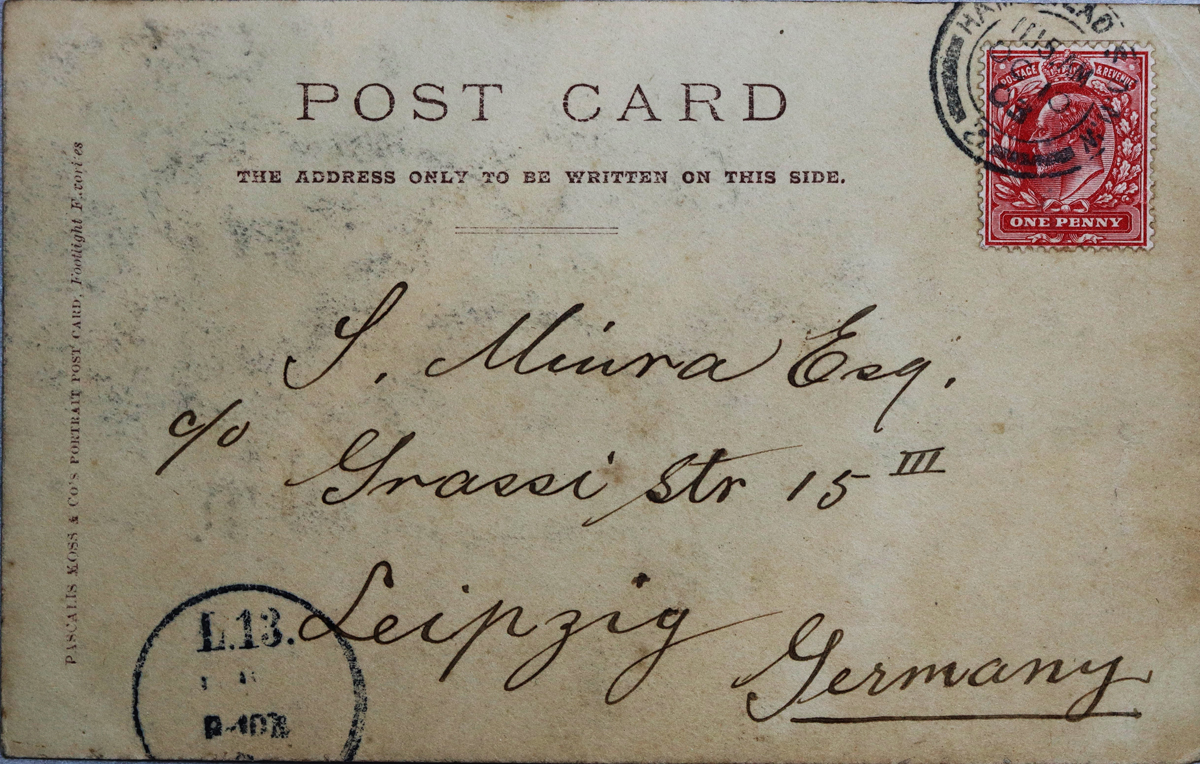 POST CARD
THE ADDRESS ONLY TO BE WRITTEN ON THIS SIDE.
POSTAGE & REVENUE
ONE PENNY
S. Miura Esq.
c/o
Grassi Str 15 III
Leipzig
Germany
L.13.
PASCALIS MOSS & CO'S PORTRAIT POST CARD, Footlight Favorites